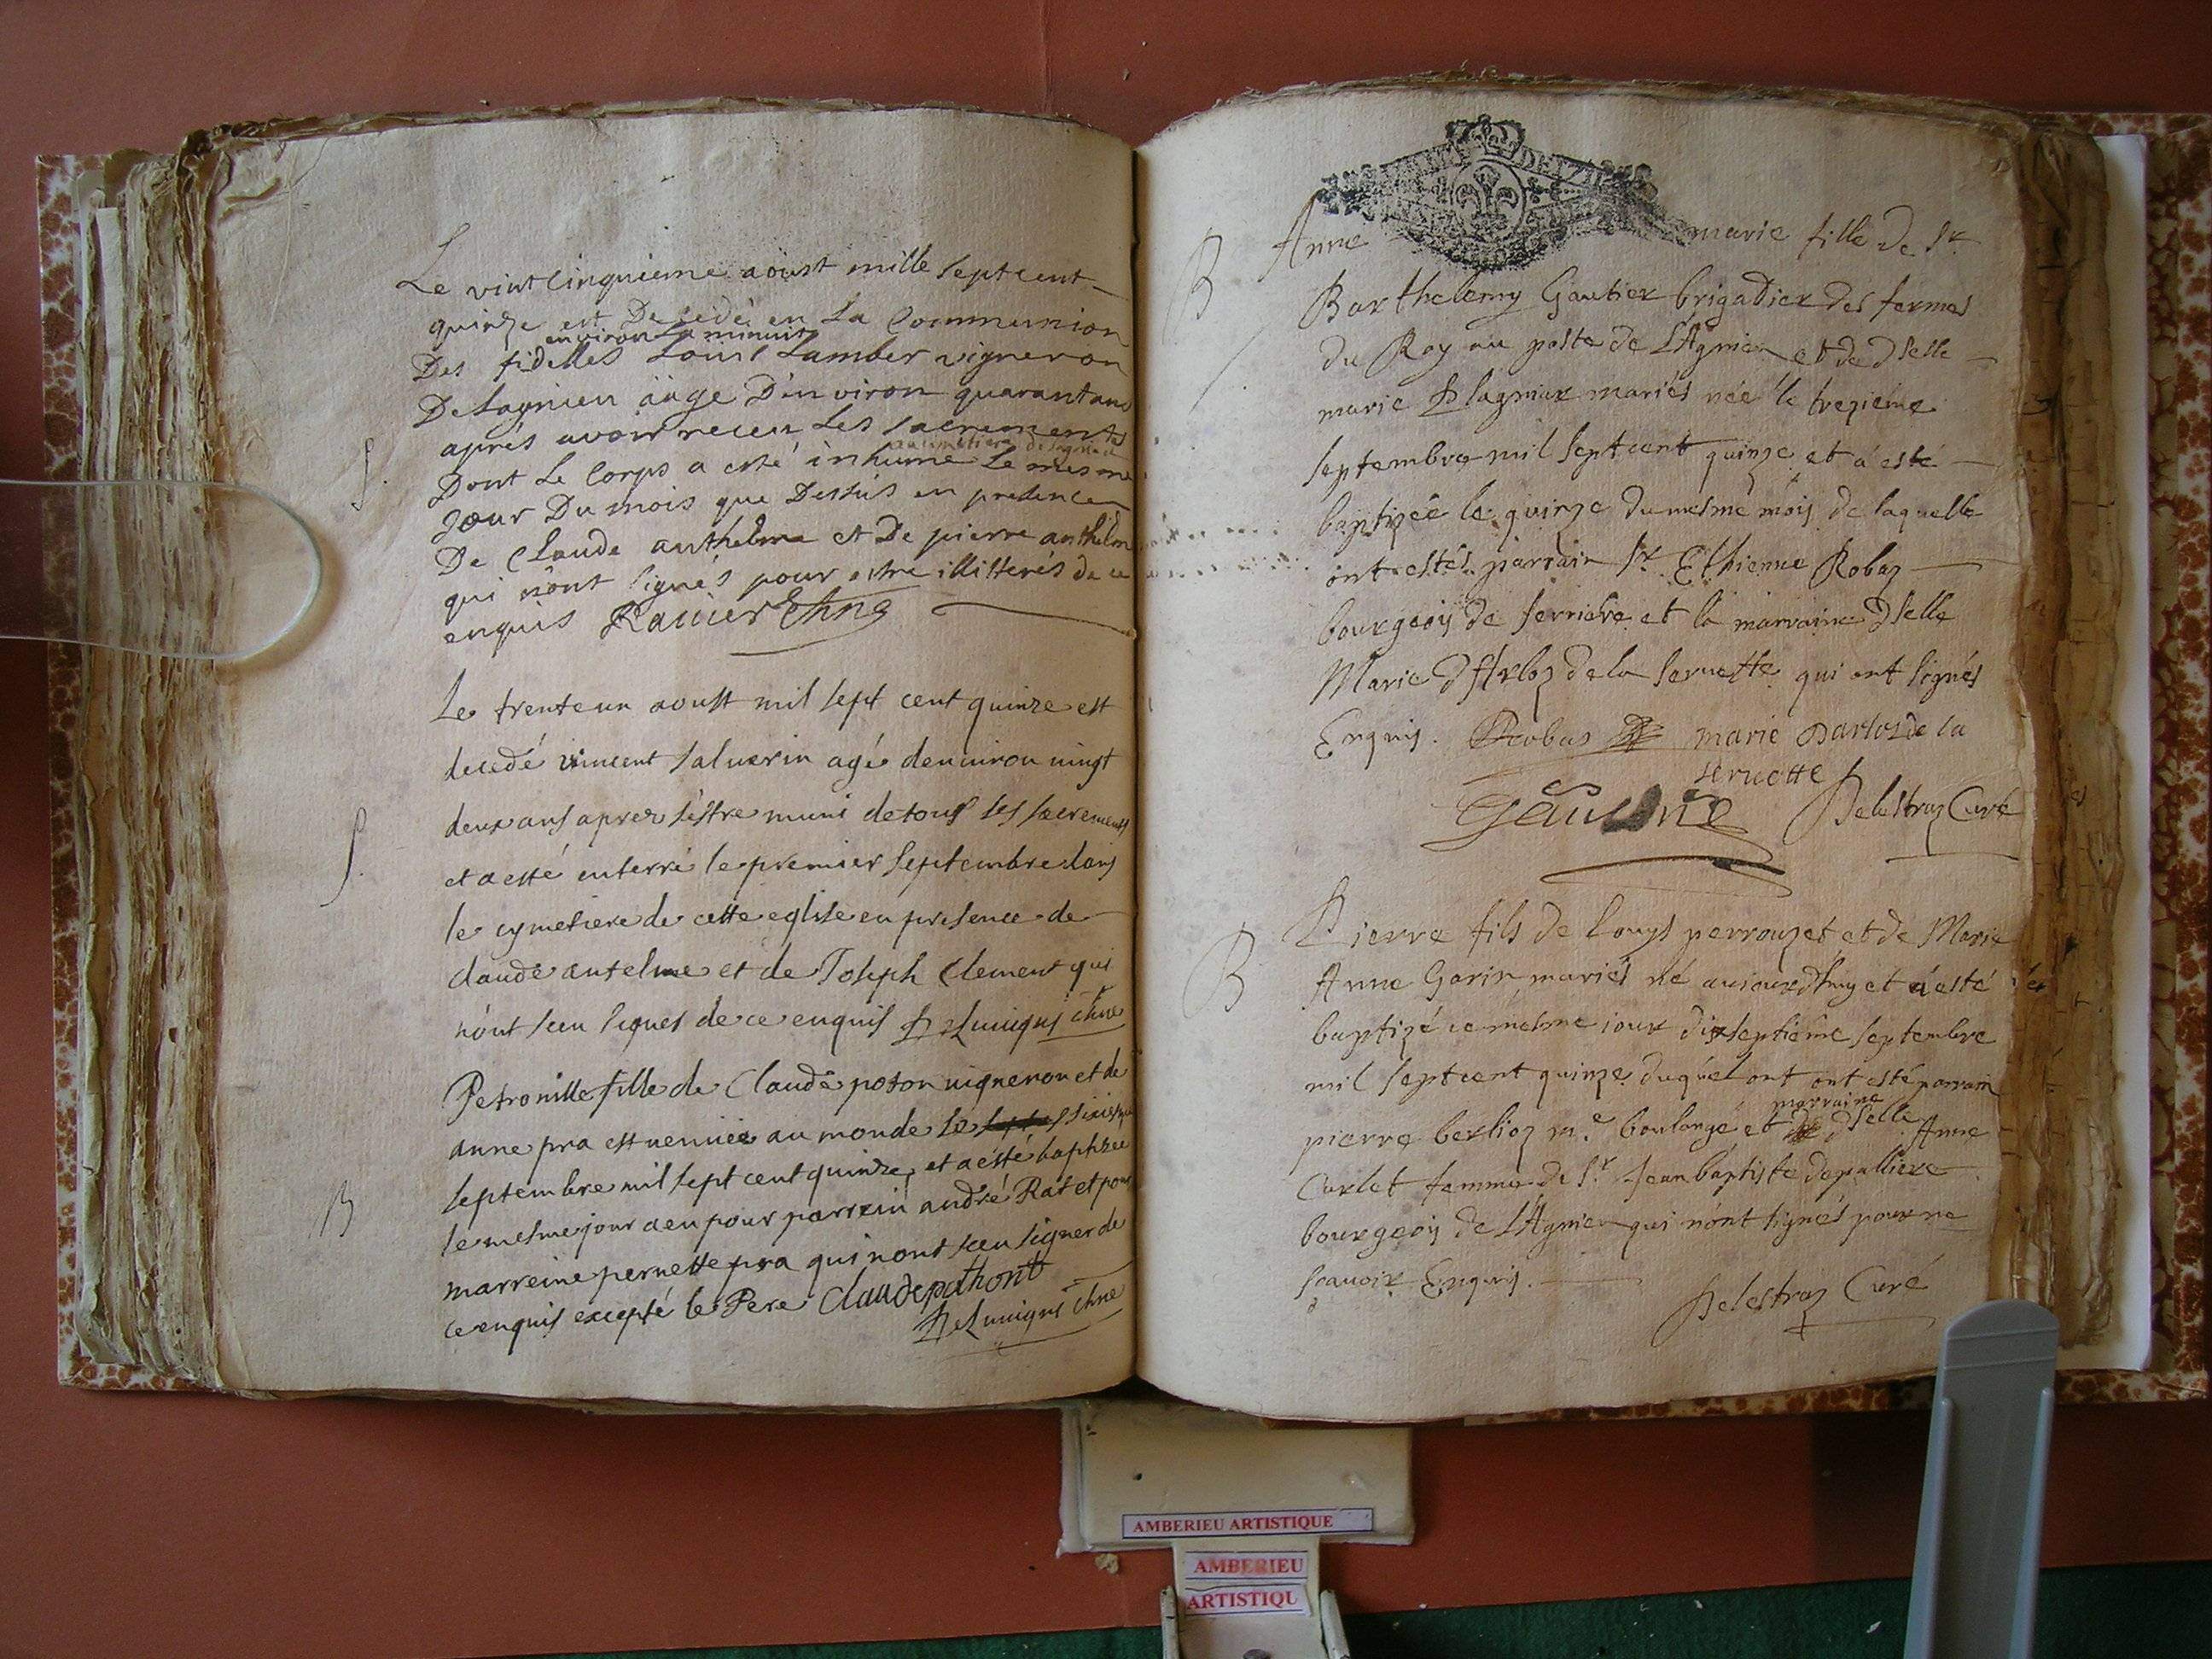 Le vintcinquieme aoust mille septcent
quinze est Decedé en La Communion
environ La minuit
Des fidelles Louis Lamber vigneron
De Lagnieu aâge D'environ quarant ans
aprés avoir receu Les sacrements
au cimetiere de Lagnieu
S. Dont Le Corps a esté inhumé Le mesme
jour Du mois que Dessus en presence
De Claude anthelme et De pierre anthelm
qui n'ont signés pour estre illitterés de ce
enquis Ravier
Le trente un aoust mil sept cent quinze est
decedé vincent salverin agé denuiron uingt
deux ans apres s'estre muni de tous les sacremens
S. et a esté enterré le premier septembre dans
le cymetiere de cette eglise en presence de
claude antelme et de Joseph Clement qui
n'ont sceu signer de ce enquis
Petronille fille de Claude poton uigneron et de
anne pra est uenuée au monde le sixiesme
septembre mil sept cent quinze, et a esté baptizée
B le mesme jour a eu pour parrein andré Rat et pour
marreine pernette pra qui nont sceu signer de
ce enquis excepté le Pere Claude pathont
B Anne marie fille de Sr
Barthelemy Gautier brigadier des fermes
du Roy au poste de L'Agnieu et de Dselle
marie Plagnieux mariés née le trezieme
septembre mil sept cent quinze et a esté
baptizée le quinze du mesme mois de laquelle
ont estés parrain Sr Ethienne Robaz
bourgeois de serriere et la marraine Dselle
Marie D'Arloz de la seruette qui ont signés
Enquis. Robas marie Darlos de la
seruette
Delestraz Curé
B Pierre fils de Louys perrouzet et de Marie
Anne Garin mariés né auiourd'huy et a esté
baptizé ce mesme iour dixseptieme septembre
mil septcent quinze duquel ont ont esté parrain
marraine
pierre berlioz me boulangé et dselle Anne
Carlet femme de Sr Jean baptiste depalliere
bourgeois de L'Agnieu qui n'ont signés pour ne
scauoir Enquis.
Delestraz Curé
AMBERIEU ARTISTIQUE
AMBERIEU
ARTISTIQU